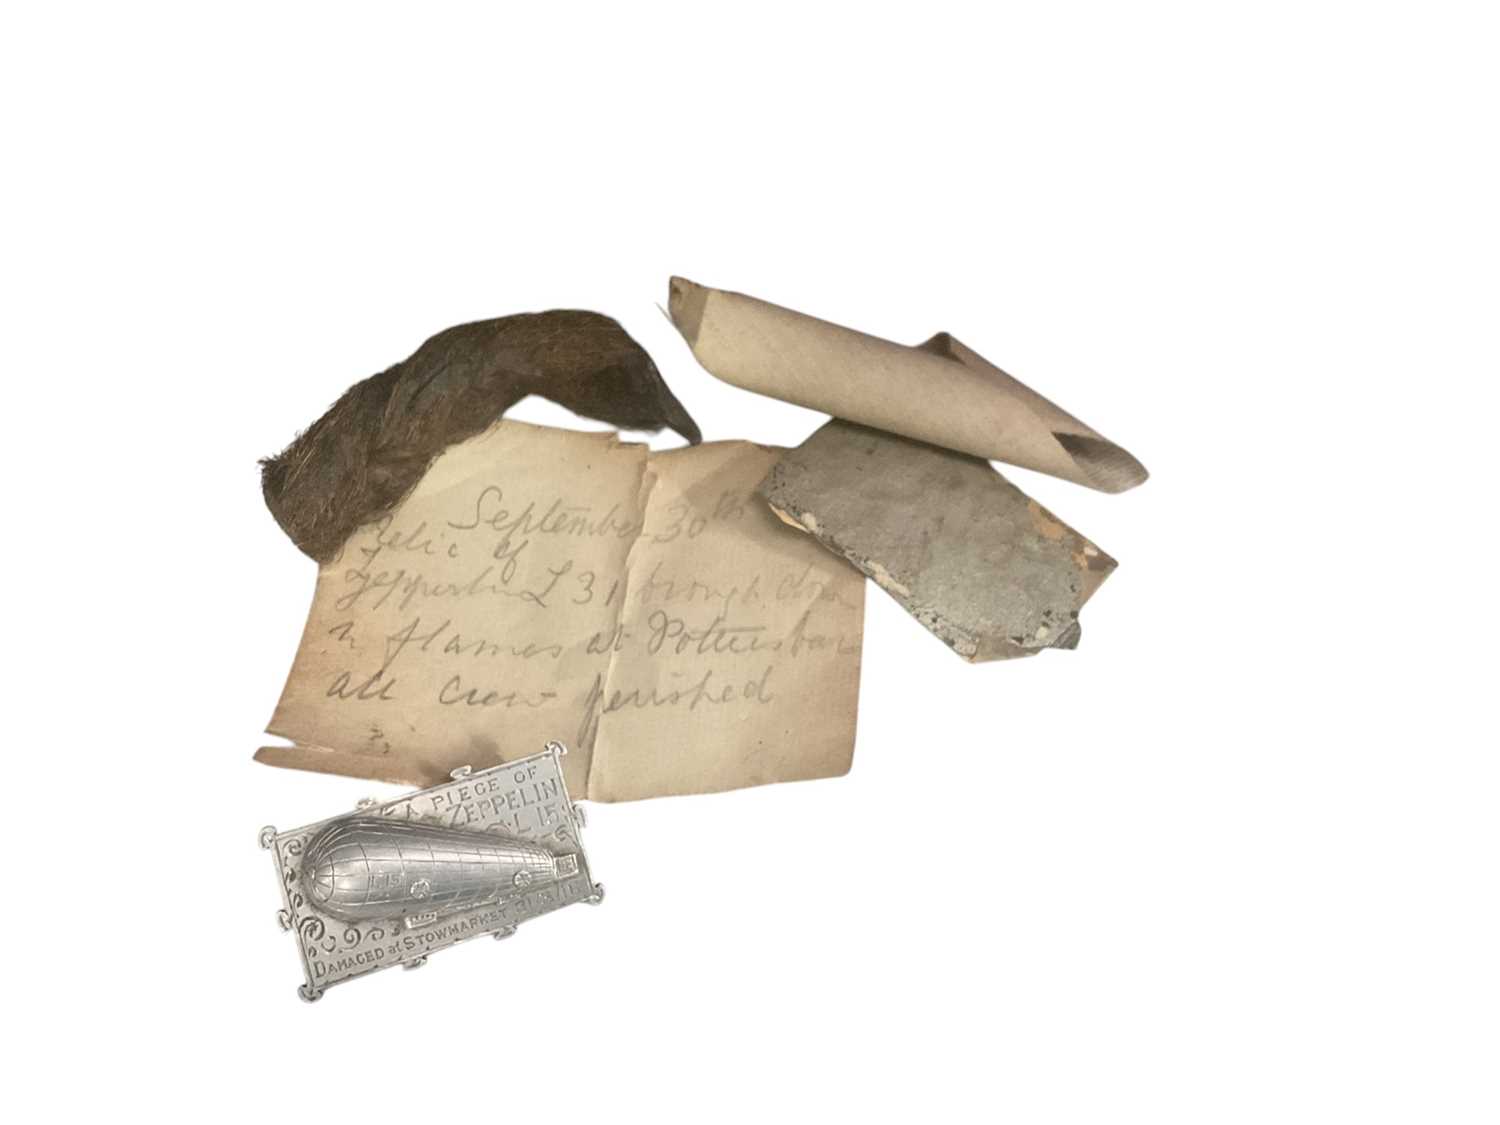 September 30th
Relic of
Zepperlin L 31 brough down
in flames at Pottersbar
all crew perished
A PIECE OF
ZEPPELIN
L 15
L15
DAMAGED at STOWMARKET 31